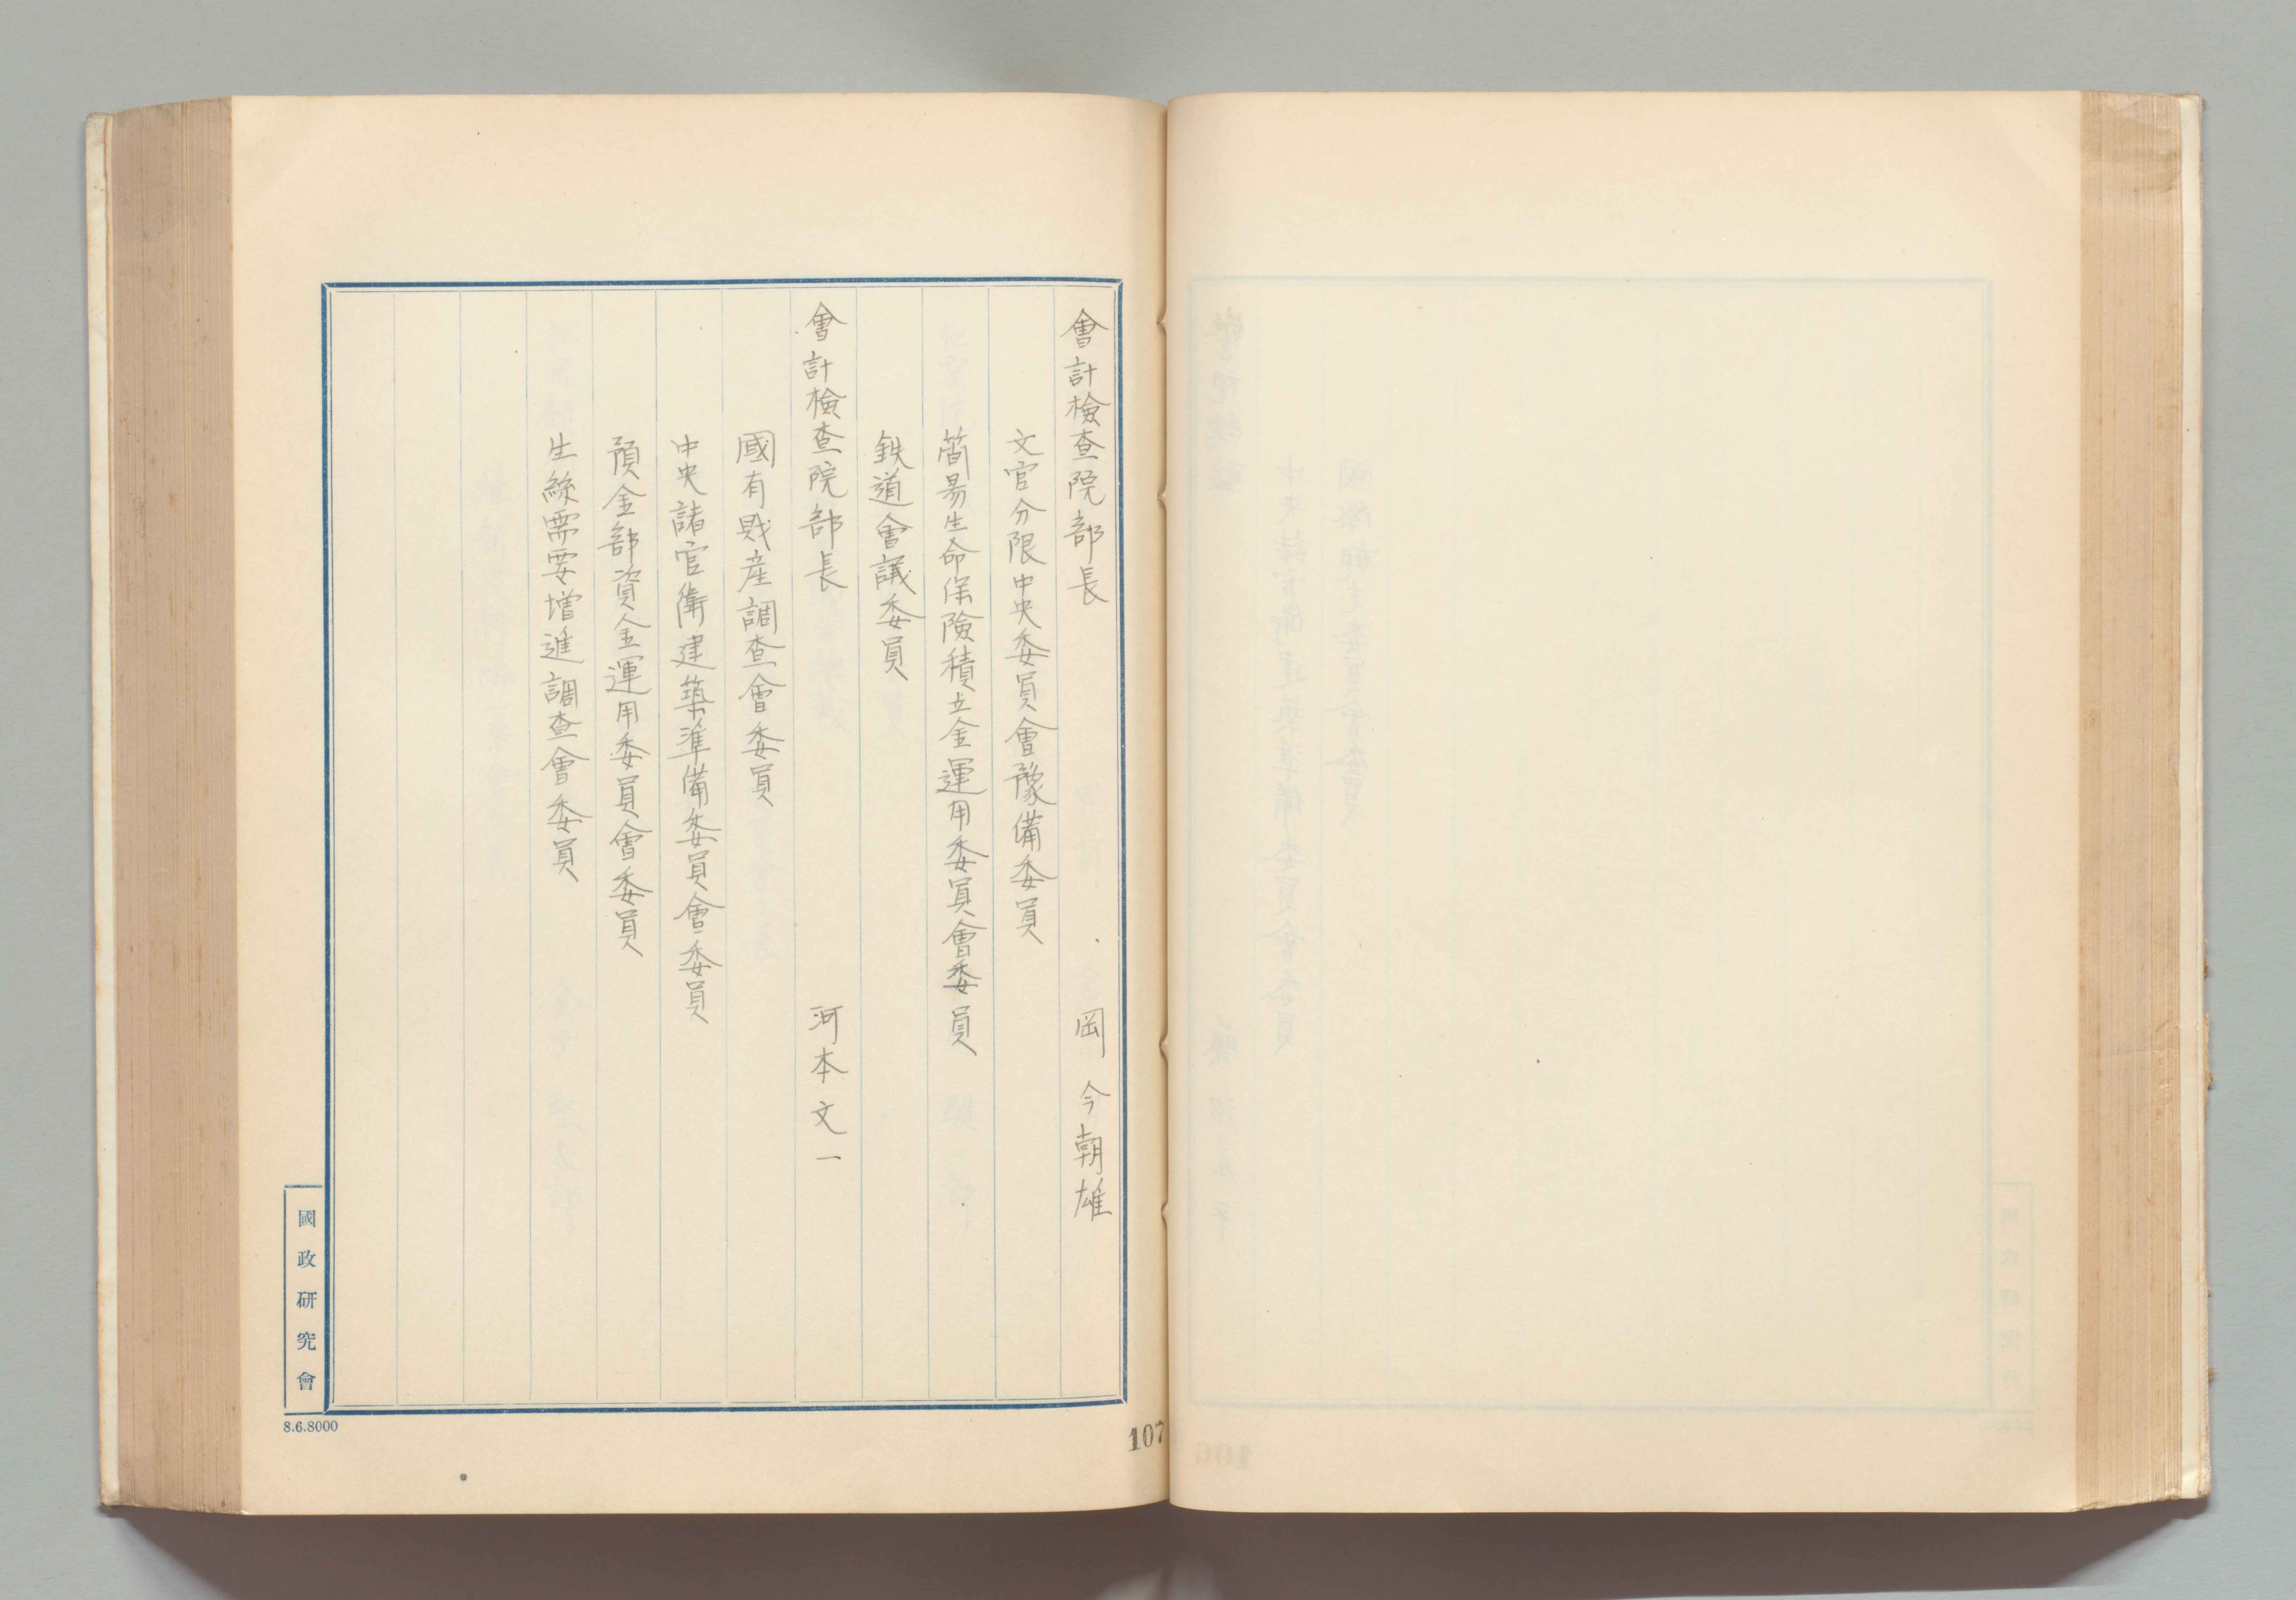 會計檢查院部長 岡今朝雄
文官分限中央委員會豫備委員
簡易生命保險積立金運用委員會委員
鉄道會議委員
會計檢查院部長 河本文一
國有財産調查會委員
中央諸官衙建築準備委員會委員
預金部資金運用委員會委員
生絲需要增進調查會委員
國政研究會
8.6.8000
107